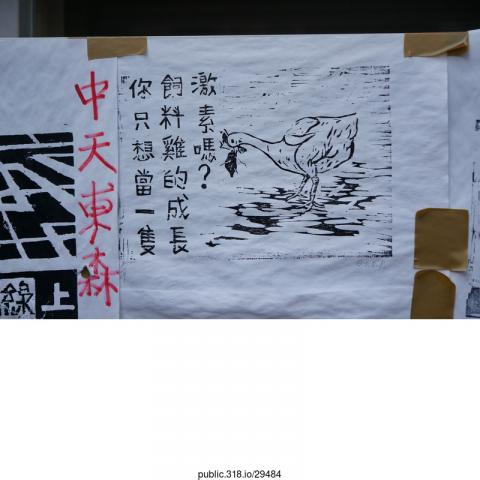 線上
中天東森
你只想當一隻
飼料雞的成長
激素嗎?
public.318.io/29484